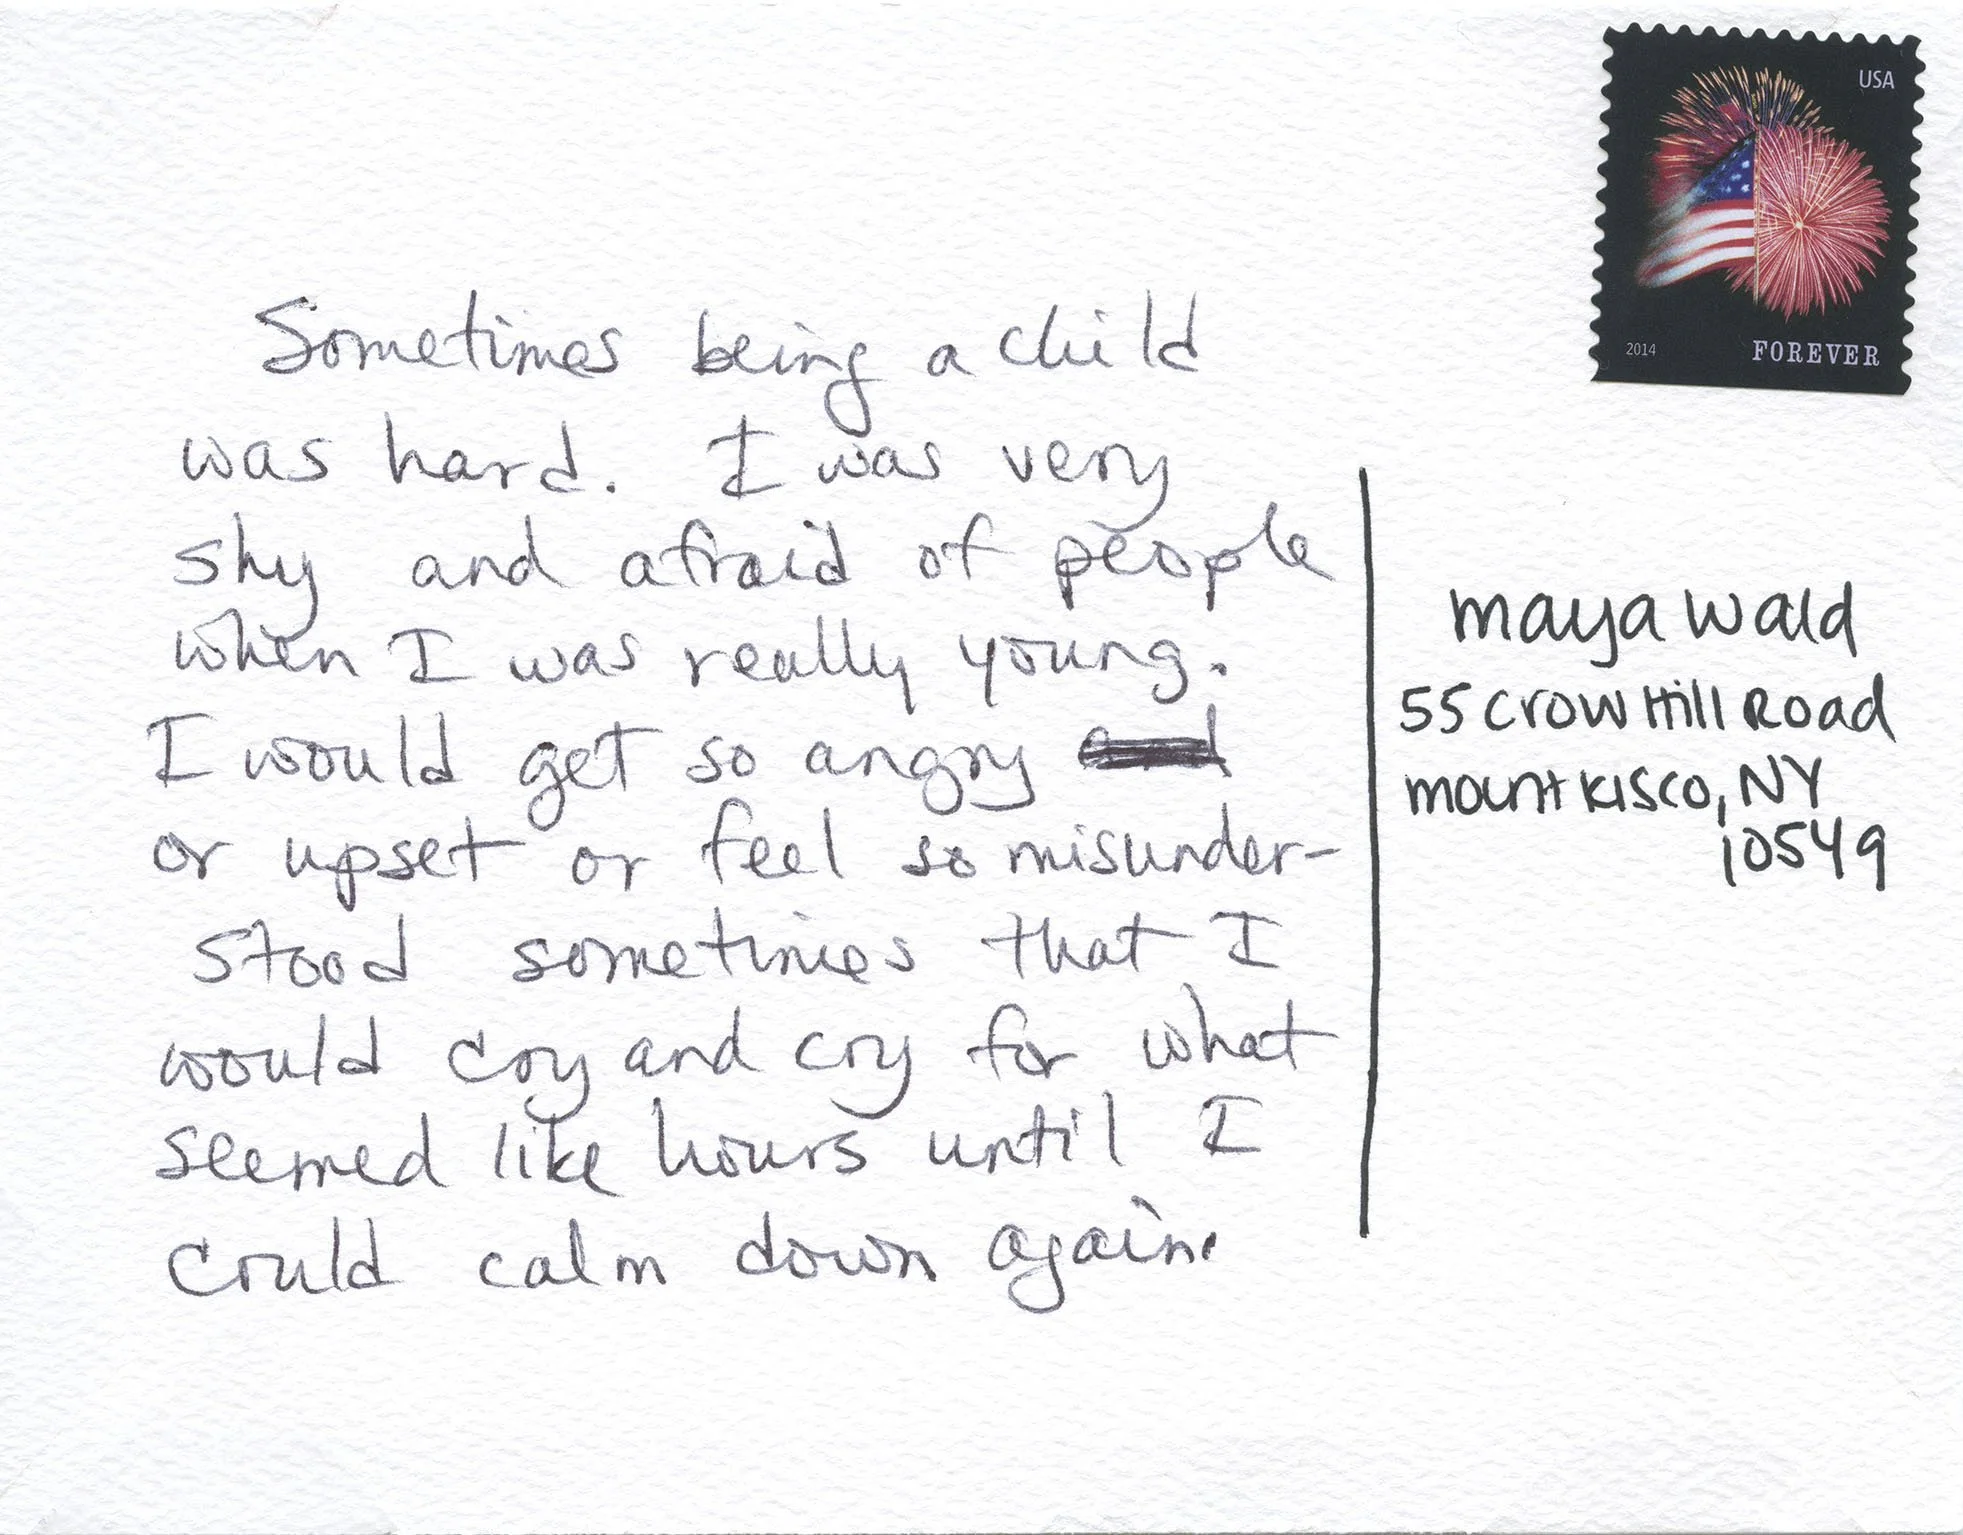 USA
2014 FOREVER
Sometimes being a child
was hard. I was very
shy and afraid of people
when I was really young.
I would get so angry and
or upset or feel so misunder-
stood sometimes that I
would cry and cry for what
seemed like hours until I
could calm down again.
maya wald
55 crow Hill Road
mount kisco, NY
10549